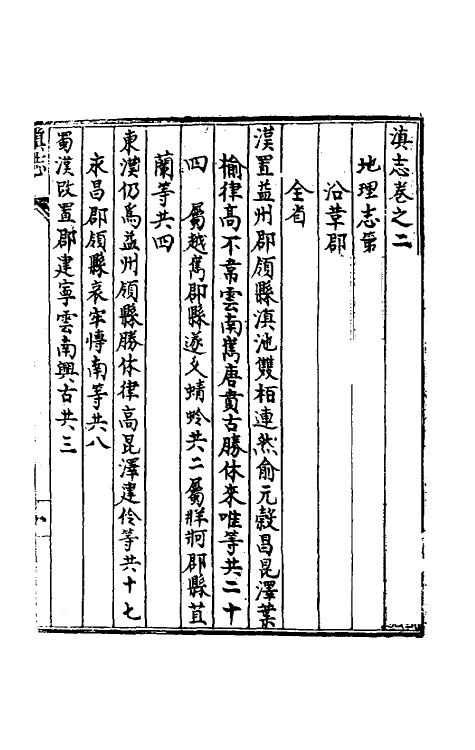 滇志卷之二
地理志第
沿革郡
全省
漢置益州郡領縣滇池雙栢連然俞元穀昌昆澤葉
榆律高不韋雲南嶲唐賁古勝休來唯等共二十
四　屬越嶲郡縣遂久蜻蛉共二屬牂牁郡縣苴
蘭等共四
東漢仍為益州領縣勝休律高昆澤建伶等共十七
永昌郡領縣哀牢博南等共八
蜀漢改置郡建寧雲南興古共三
滇志